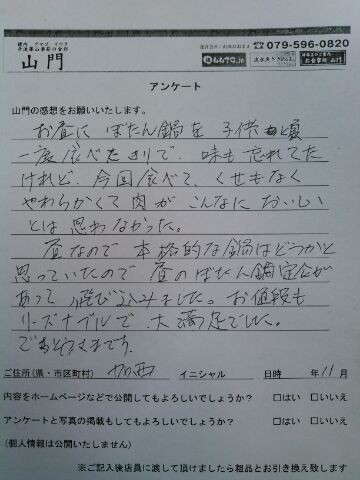 山門
079-596-0820
アンケート
山門の感想をお願いいたします。
お昼に ぼたん鍋を 子供 頃
一度 食べたきりで、味も 忘れてた
けれど、今回食べて、くせもなく
やわらかくて 肉が こんなに おいしい
とは 思わなかった。
昼なので 本格的な鍋はどうかと
思っていたので 昼のぼたん鍋定食が
あって 飛び込みました。お値段も
リーズナブルで、大満足でした。
ごちそうさまです。
ご住所(県・市区町村) 加西 イニシャル 日時 年 11 月
内容をホームページなどで公開してもよろしいでしょうか? □はい □いいえ
アンケートと写真の掲載もしてもよろしいでしょうか? □はい □いいえ
(個人情報は公開いたしません)
※ご記入後店員に渡して頂けましたら粗品とお引き換え致します